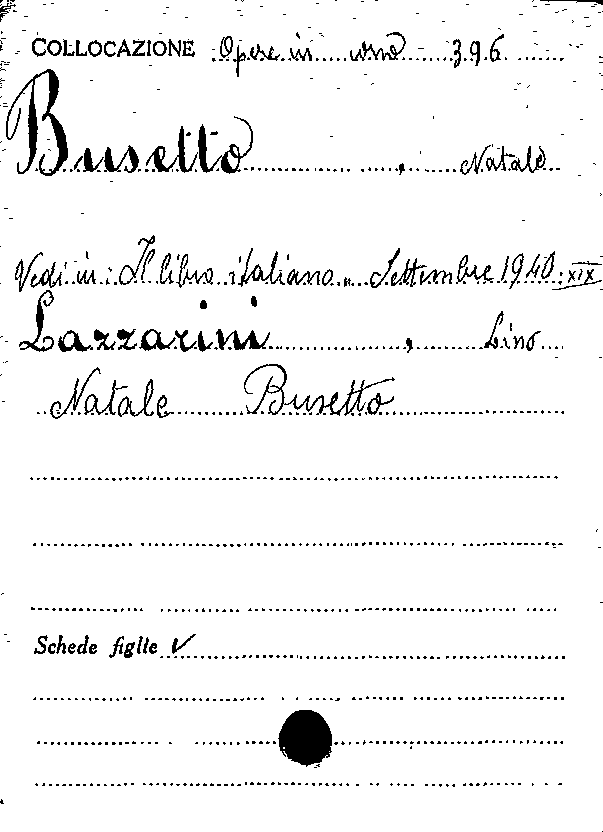 COLLOCAZIONE Opere in uso 396
Busetto, Natale
Vedi in: Il libro italiano„ Settembre 1940. XIX
Lazzarini, Lino
Natale Busetto
Schede figlie ✓